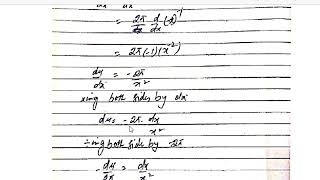 dx dx
= 2π/dx d/dx (x)⁻¹
= 2π(-1)(x⁻²)
dy/dx = -2π/x²
xing both sides by dx
dy = -2π · dx/x²
÷ing both side by -2π
-dy/2π = dx/x²